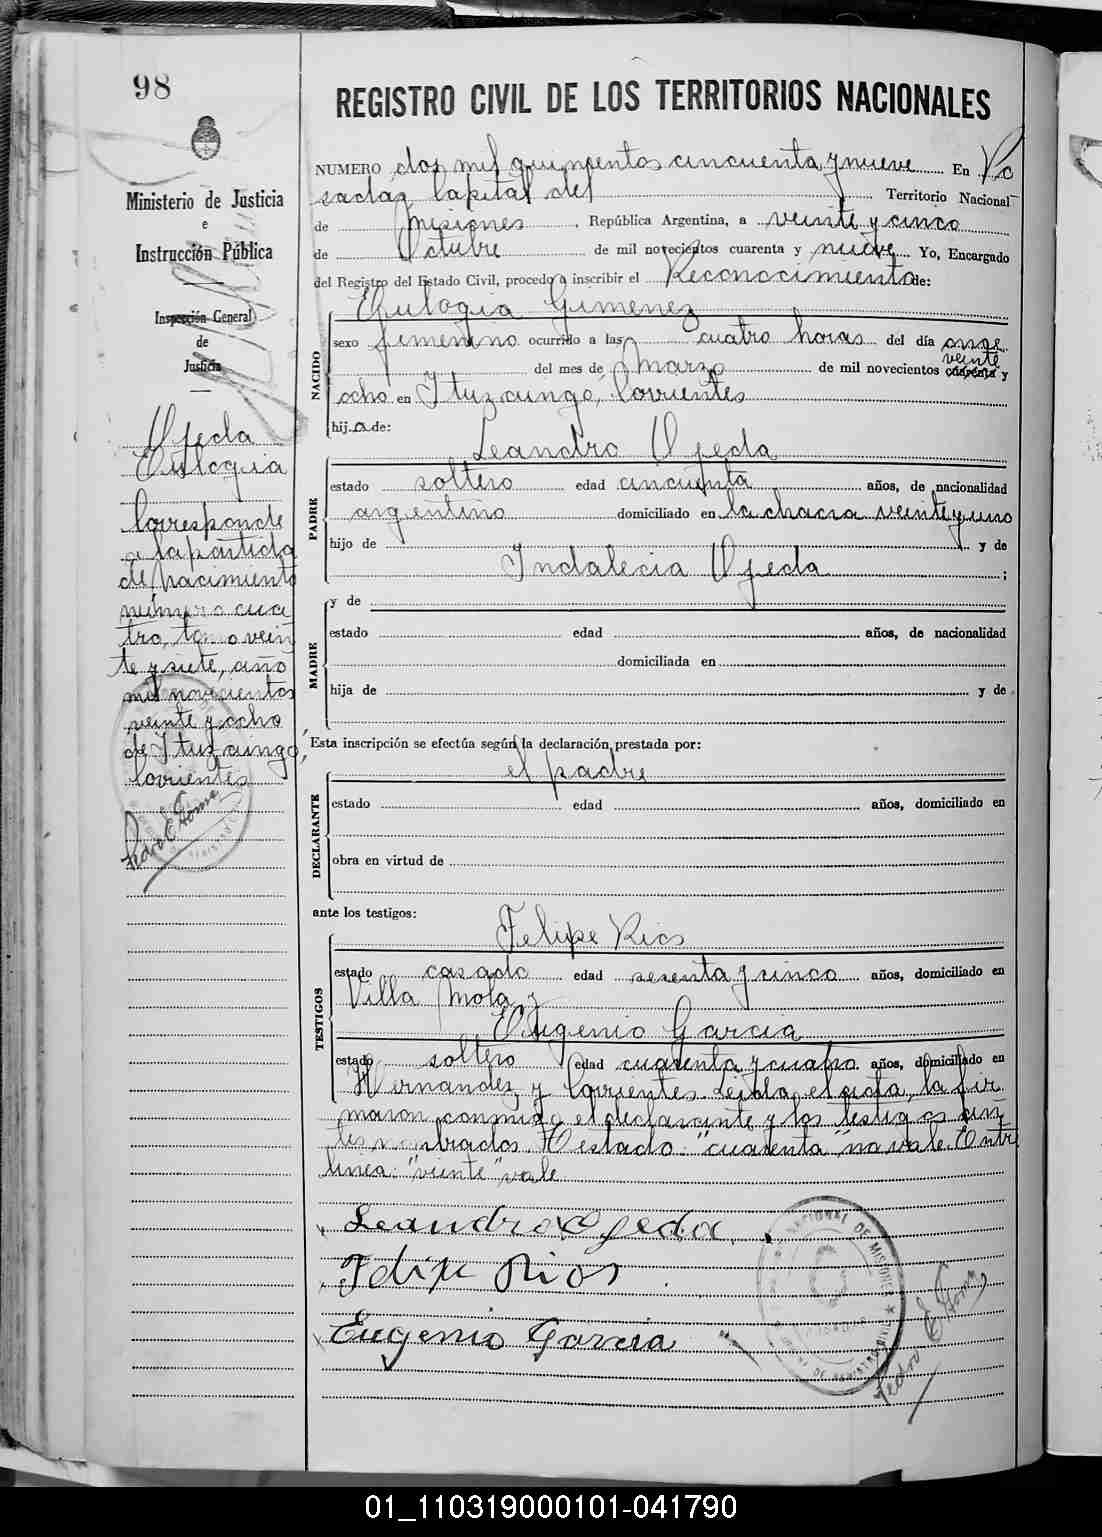 98
REGISTRO CIVIL DE LOS TERRITORIOS NACIONALES
Ministerio de Justicia
e
Instrucción Pública
Inspección General
de
Justicia
Ojeda
Eulogia
Corresponde
a la partida
de nacimiento
número cua
tro, tomo vein
te y siete, año
mil novecientos
veinte y ocho
de Ituzaingo,
Corrientes
Pedro E. Gome
NUMERO dos mil quinientos cincuenta y nueve En Po
sadas Capital del Territorio Nacional
de Misiones, República Argentina, a veinte y cinco
de Octubre de mil novecientos cuarenta y nueve Yo, Encargado
del Registro del Estado Civil, procedo a inscribir el Reconocimiento de:
NACIDO
Eulogia Gimenez
sexo femenino ocurrido a las cuatro horas del día once
veinte
del mes de Marzo de mil novecientos cuarenta y
ocho en Ituzaingo, Corrientes
hija de:
PADRE
Leandro Ojeda
estado soltero edad cincuenta años, de nacionalidad
argentino domiciliado en la chacra veinte y uno
hijo de y de
Indalecia Ojeda ;
MADRE
y de
estado edad años, de nacionalidad
domiciliada en
hija de y de
Esta inscripción se efectúa según la declaración prestada por:
DECLARANTE
el padre
estado edad años, domiciliado en
obra en virtud de
ante los testigos:
TESTIGOS
Felipe Rios
estado casado edad sesenta y cinco años, domiciliado en
Villa Mola y
Eugenio Garcia
estado soltero edad cuarenta y cuatro años, domiciliado en
Hernandez y Corrientes. Leida el acta, la fir
maron conmigo el declarante y los testigos an
tes nombrados. Testado: "cuarenta" no vale. Entre
linea: "veinte" vale
Leandro Ojeda
Felipe Rios
Eugenio Garcia
NACIONAL DE MISIONES
POSADAS
Pedro E. Gome
01_110319000101-041790